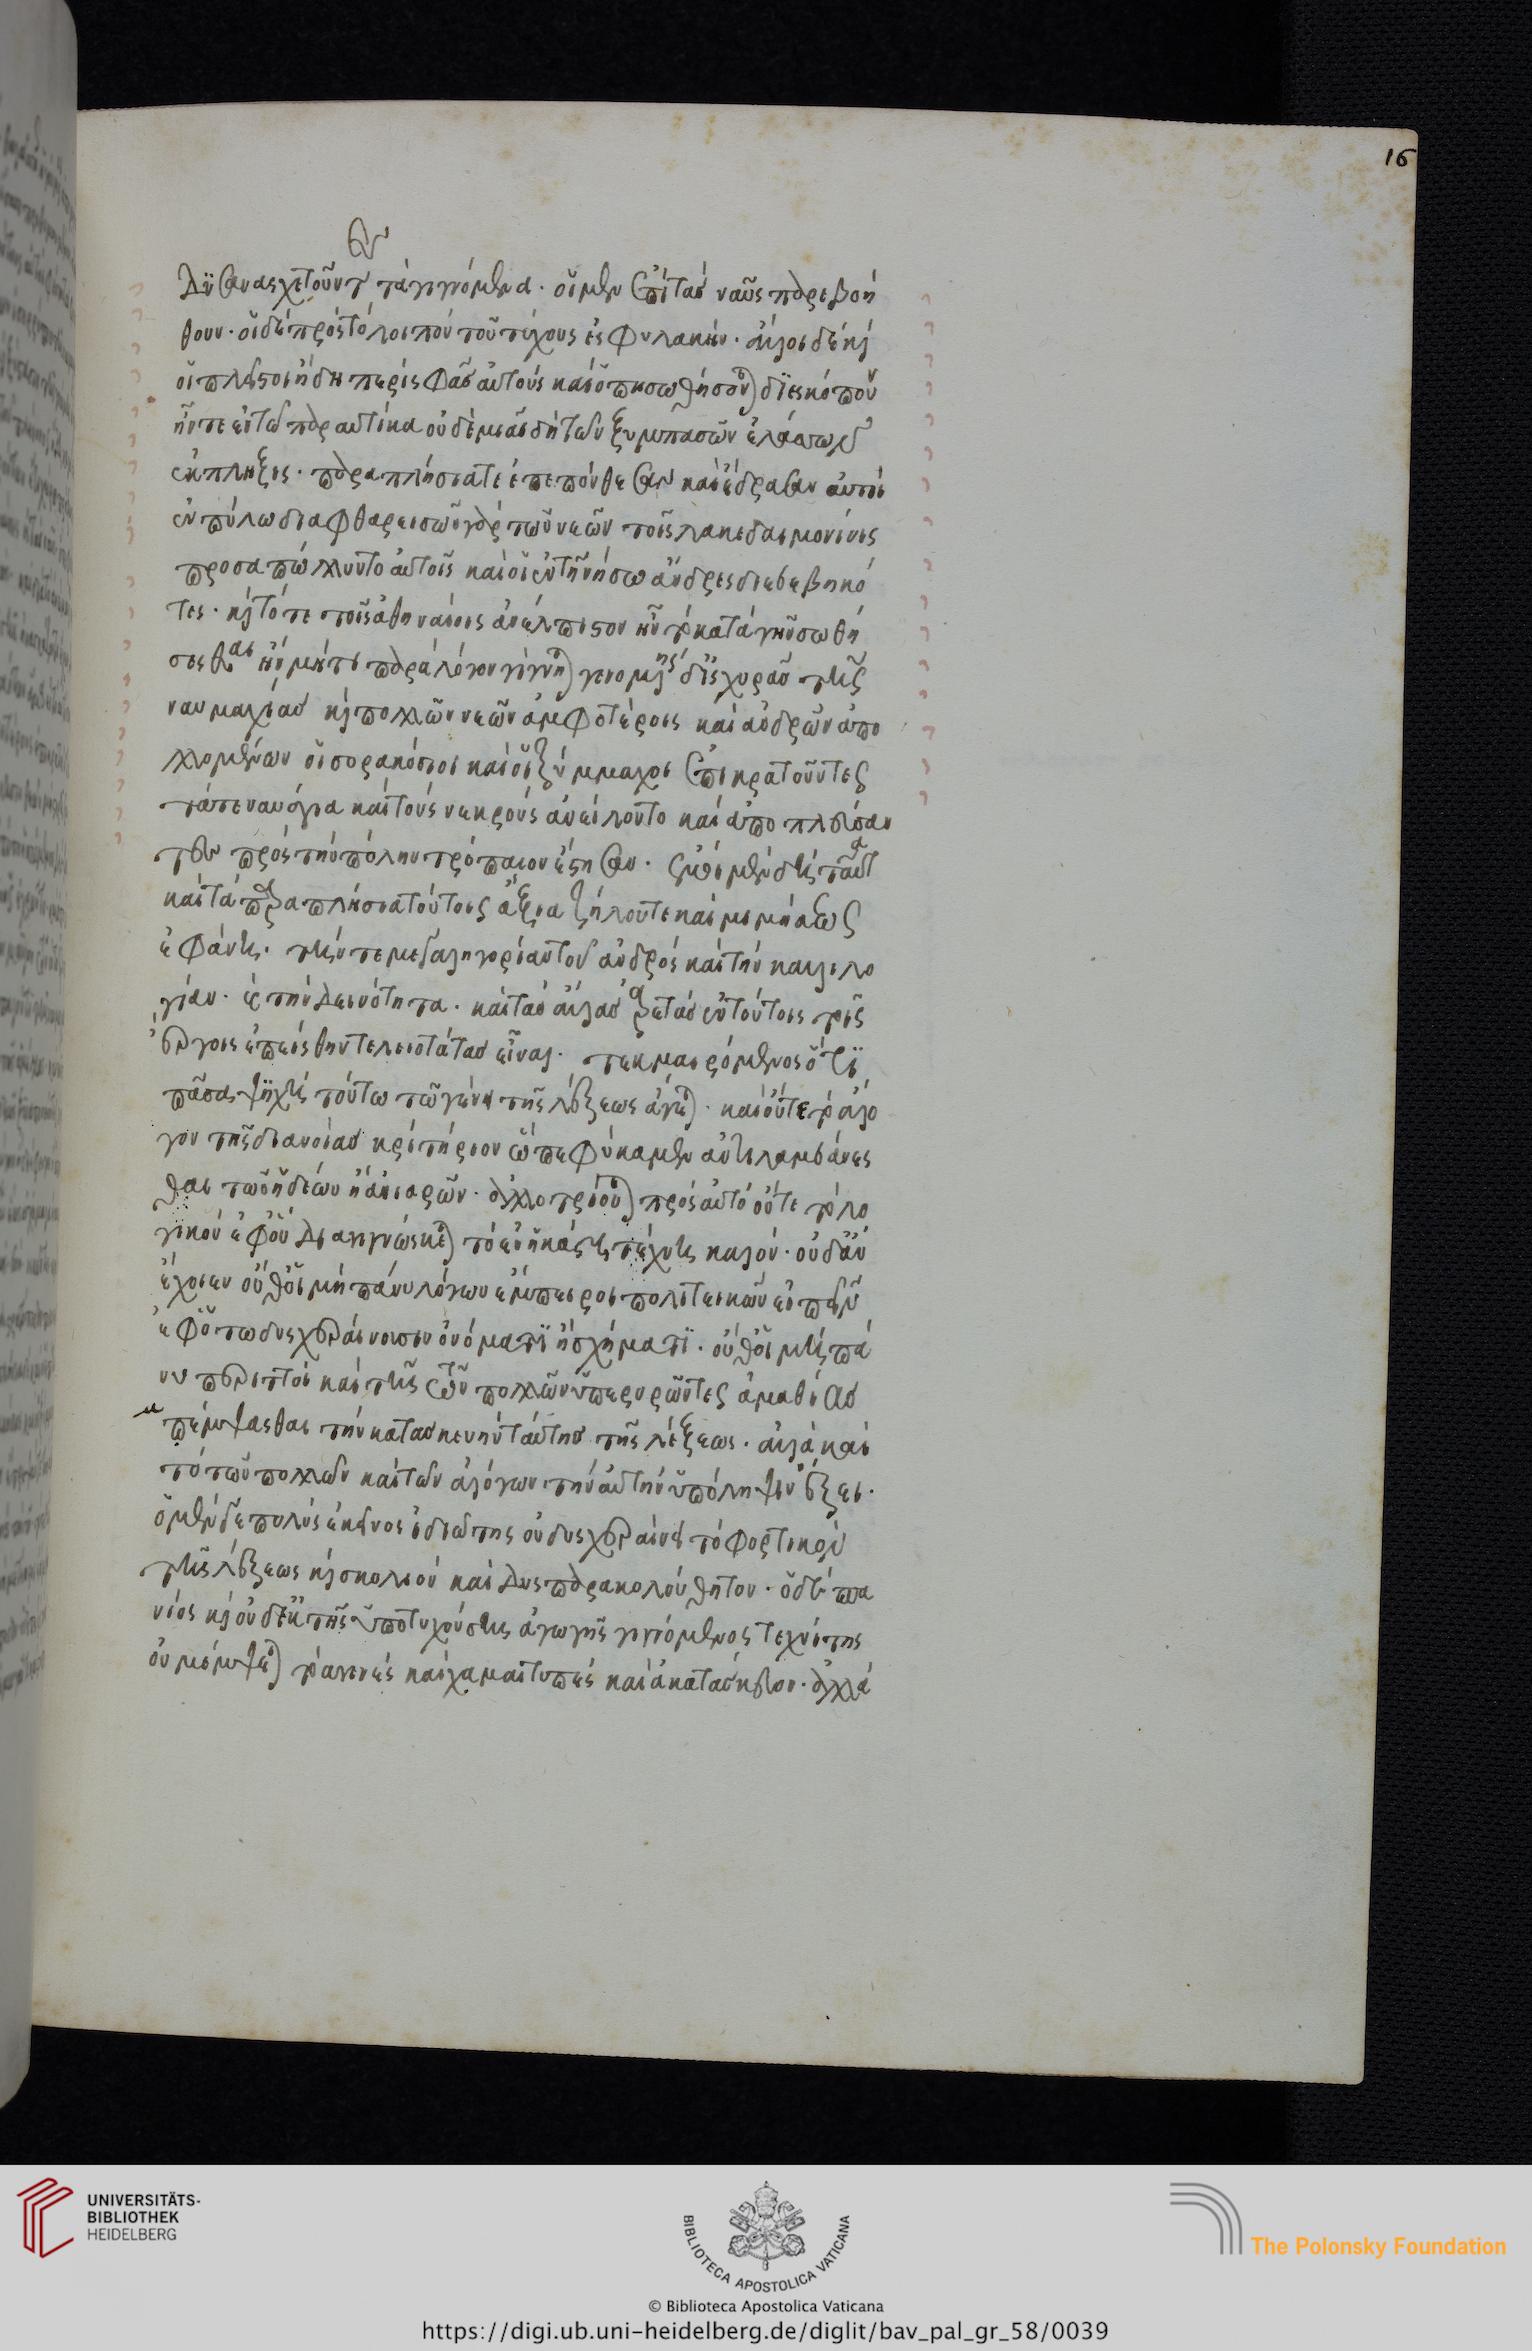 δυσανασχετοῦντες τὰ γιγνόμενα · οἱ μὲν ἐπὶ τὰς ναῦς παρεβοή
θουν · οἱ δὲ πρὸς τὸ λοιπὸν τοῦ τείχους ἐς φυλακήν · ἄλλοι δὲ καὶ
οἱ πλεῖστοι ἤδη περὶ σφᾶς αὐτοὺς καὶ ὅπη σωθήσονται διεσκόπουν
ἦν τε ἐν τῶ παραυτίκα οὐδεμιᾶς δὴ τῶν ξυμπασῶν ἐλάσσων
ἔκπληξις · παραπλήσιά τε ἐπεπόνθεσαν καὶ ἔδρασαν αὐτοὶ
ἐν πύλω διαφθαρεισῶν γὰρ τῶν νεῶν τοῖς λακεδαιμονίοις
προσαπώλλυντο αὐτοῖς καὶ οἱ ἐν τῆ νήσω ἄνδρες διεβεβηκό
τες · καὶ τότε τοῖς ἀθηναίοις ἀνέλπιστον ἦν τὸ κατὰ γῆν σωθή
σεσθαι ἢν μή τι παρὰ λόγον γίγνηται γενομένης δ' ἰσχυρᾶς τῆς
ναυμαχίας καὶ πολλῶν νεῶν ἀμφοτέροις καὶ ἀνδρῶν ἀπο
λλομένων οἱ συρακόσιοι καὶ οἱ ξύμμαχοι ἐπικρατοῦντες
τά τε ναυάγια καὶ τοὺς νεκροὺς ἀνείλοντο καὶ ἀποπλεύσαν
τες πρὸς τὴν πόλιν τρόπαιον ἔστησαν · ἐμοὶ μὲν δὴ ταῦτα
καὶ τὰ παραπλήσια τούτοις ἄξια ζήλου τε καὶ μιμήσεως
ἐφάνη · τήν τε μεγαληγορίαν τοῦ ἀνδρὸς καὶ τὴν καλλιλο
γίαν · καὶ τὴν δεινότητα · καὶ τὰς ἄλλας ἀρετὰς ἐν τούτοις τοῖς
ἔργοις ἐπείσθην τελειοτάτας εἶναι · τεκμαιρόμενος ὅτι
πᾶσα ψυχὴ τούτω τῶ γένει τῆς λέξεως ἄγεται · καὶ οὔτε τὸ ἄλο
γον τῆς διανοίας κριτήριον ὧ πεφύκαμεν ἀντιλαμβάνεσ
θαι τῶν ἡδέων ἢ ἀνιαρῶν · ἀλλοτριοῦται πρὸς αὐτὸ οὔτε τὸ λο
γικὸν ἐφ' οὗ διαγιγνώσκεται τὸ ἐν ἑκάστη τέχνη καλόν · οὐδ' ἂν
ἔχοιεν οὔθ' οἱ μὴ πάνυ λόγων ἔμπειροι πολιτεικῶν εἰπεῖν
ἐφ' ὅτω δυσχεραίνουσιν ὀνόματι ἢ σχήματι · οὔθ' οἱ μὴ πά
νυ περιττοὶ καὶ τῆς τῶν πολλῶν ὑπερορῶντες ἀμαθίας
μέμψασθαι τὴν κατασκευὴν ταύτην τῆς λέξεως · ἀλλὰ καὶ
τὸ τῶν πολλῶν καὶ τῶν ἀλόγων τὴν αὐτὴν ὑπόληψιν ἕξει ·
ὁ μέν γε πολὺς ἐκεῖνος ἰδιώτης οὐ δυσχεραίνει τὸ φορτικὸν
τῆς λέξεως καὶ σκολιὸν καὶ δυσπαρακολούθητον · ὁ δὲ σπά
νιος καὶ οὐδ' ἐκ τῆς ἐπιτυχούσης ἀγωγῆς γιγνόμενος τεχνίτης
οὐ μέμψεται τὸ ἀγενὲς καὶ χαμαιτυπὲς καὶ ἀκατάσκευον · ἀλλὰ
16
UNIVERSITÄTS-
BIBLIOTHEK
HEIDELBERG
BIBLIOTECA APOSTOLICA VATICANA
The Polonsky Foundation
© Biblioteca Apostolica Vaticana
https://digi.ub.uni-heidelberg.de/diglit/bav_pal_gr_58/0039